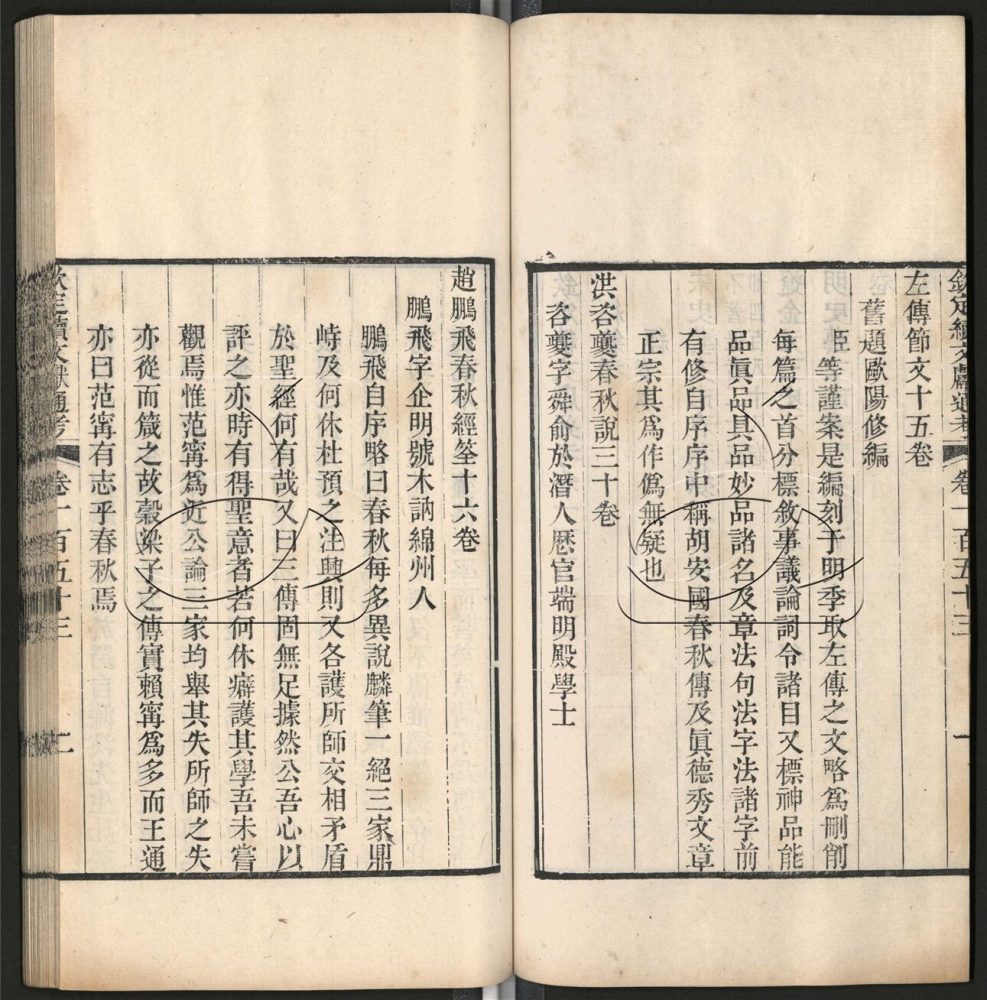 欽定續文獻通考 卷一百五十三 一
左傳節文十五卷
舊題歐陽修編
臣等謹案是編刻于明季取左傳之文略為刪削
每篇之首分標敘事議論詞令諸目又標神品能
品眞品具品妙品諸名及章法句法字法諸字前
有修自序序中稱胡安國春秋傳及眞德秀文章
正宗其為作偽無疑也
洪咨夔春秋說三十卷
咨夔字舜俞於潛人歷官端明殿學士
趙鵬飛春秋經筌十六卷
鵬飛字企明號木訥綿州人
鵬飛自序略曰春秋每多異說麟筆一絕三家鼎
峙及何休杜預之注興則又各護所師交相矛盾
於聖經何有哉又曰三傳固無足據然公吾心以
評之亦時有得聖意者若何休癖護其學吾未嘗
觀焉惟范甯為近公論三家均舉其失所師之失
亦從而箴之故穀梁子之傳實賴甯為多而王通
亦曰范甯有志乎春秋焉
欽定續文獻通考 卷一百五十三 二